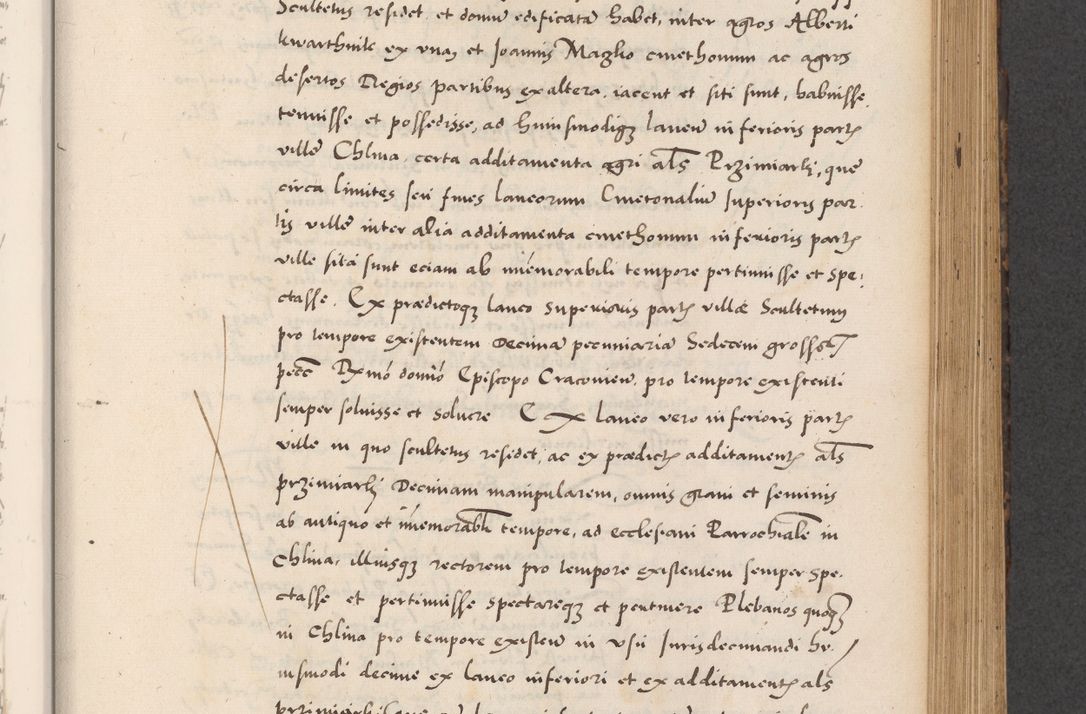 Scultetus residet et domũ edificatã habet, inter agros Alberti
kwarthnik ex vna, et Joannis Maglio cmethonum ac agros
desertos Regios partibus ex altera. iacent et siti sunt, habuisse
tenuisse et possedisse, ad huiusmodiqȝ laneũ inferioris partꝭ
ville Chlina. certa additamenta agri als Przimiarki, que
circa limites seu fines laneorum Cmetonaliũ superioris par
tis ville inter alia additamenta cmethonum inferioris partꝭ
ville sita sunt eciam ab im̃emorabili tempore pertinuisse et spe:
ctasse. Ex prædictoqȝ laneo superioris partꝭ villæ Scultetum
pro tempore existentem Decimã pecuniariã Sedecim grossoꝝ
pecc̃ Rx̃mo domĩo Episcopo Cracovieñ. pro tempore existenti
semper soluisse et soluere Ex laneo vero inferioris partꝭ
ville in quo scultetus residet, ac ex prædictꝭ additamentꝭ als
przimiarki Decimam manipularem, omnis grani et seminis
ab antiquo et im̃emorabli tempore, ad ecclesiam Parrochialẽ in
Chlina, illiusqȝ rectorem pro tempore existentem semper spe:
ctasse et pertinuisse spectareqȝ et pertinere Plebanos quoqȝ
in Chlina pro tempore existeñ in vsu Jurisdecimandi hu-
iusmodi decime ex laneo inferiori et ex additamentꝭ als